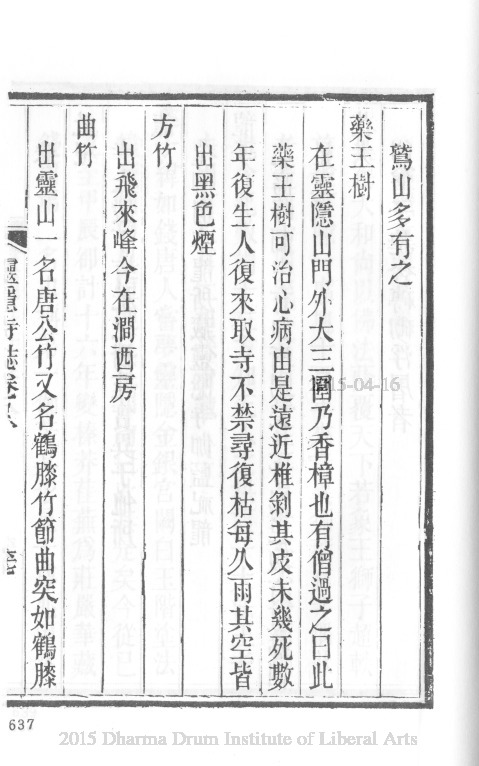 鷲山多有之
藥王樹
在靈隱山門外大三圍乃香樟也有僧過之曰此
藥王樹可治心病由是遠近椎剝其皮未幾死數
年復生人復來取寺不禁尋復枯每久雨其空皆
出黑色煙
方竹
出飛來峰今在澗西房
曲竹
出靈山一名唐公竹又名鶴膝竹節曲突如鶴膝
靈隱寺誌卷八
637
2015-04-16
2015 Dharma Drum Institute of Liberal Arts